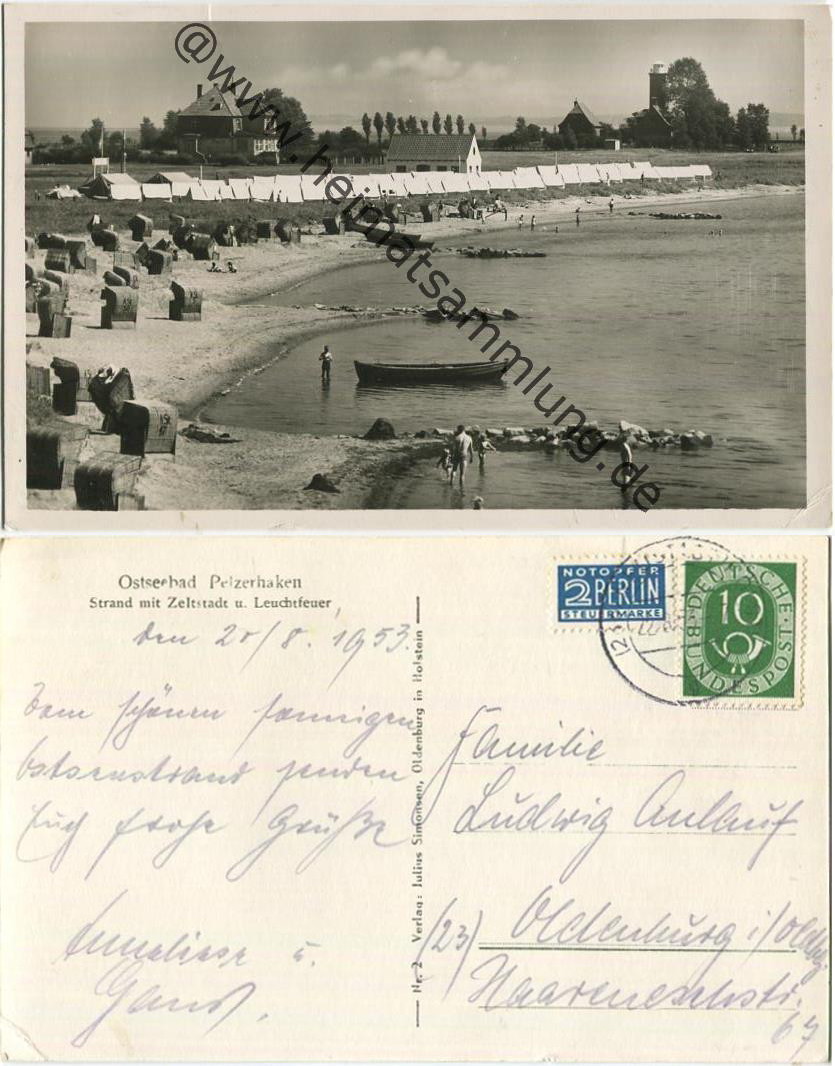 @www.heimatsammlung.de
Ostseebad Pelzerhaken
Strand mit Zeltstadt u. Leuchtfeuer
den 20/8. 1953.
Vom schönen sonnigen
Ostseestrand senden
Euch frohe Grüße
Anneliese u.
Nr. 2 Verlag: Julius Simonsen, Oldenburg in Holstein
NOTOPFER
2 BERLIN
STEUERMARKE
DEUTSCHE
10
BUNDESPOST
Familie
Ludwig Anlauf
(23) Oldenburg i/Oldbg.
Haareneschstr.
67